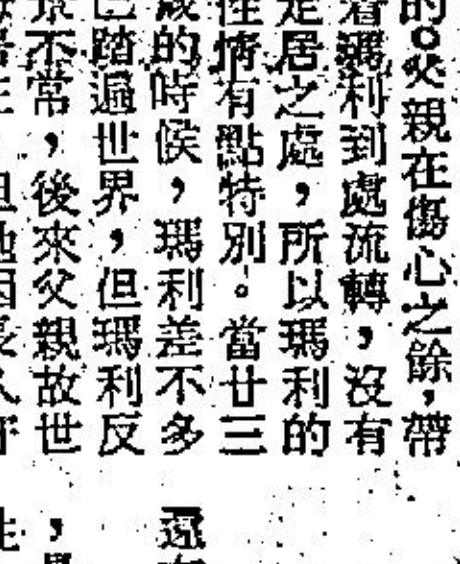 的。父親在傷心之餘,帶
着瑪利到處流轉,沒有
定居之處,所以瑪利的
性情有點特別。當廿三
歲的時候,瑪利差不多
已踏遍世界,但瑪利反
景不常,後來父親故世
還
,